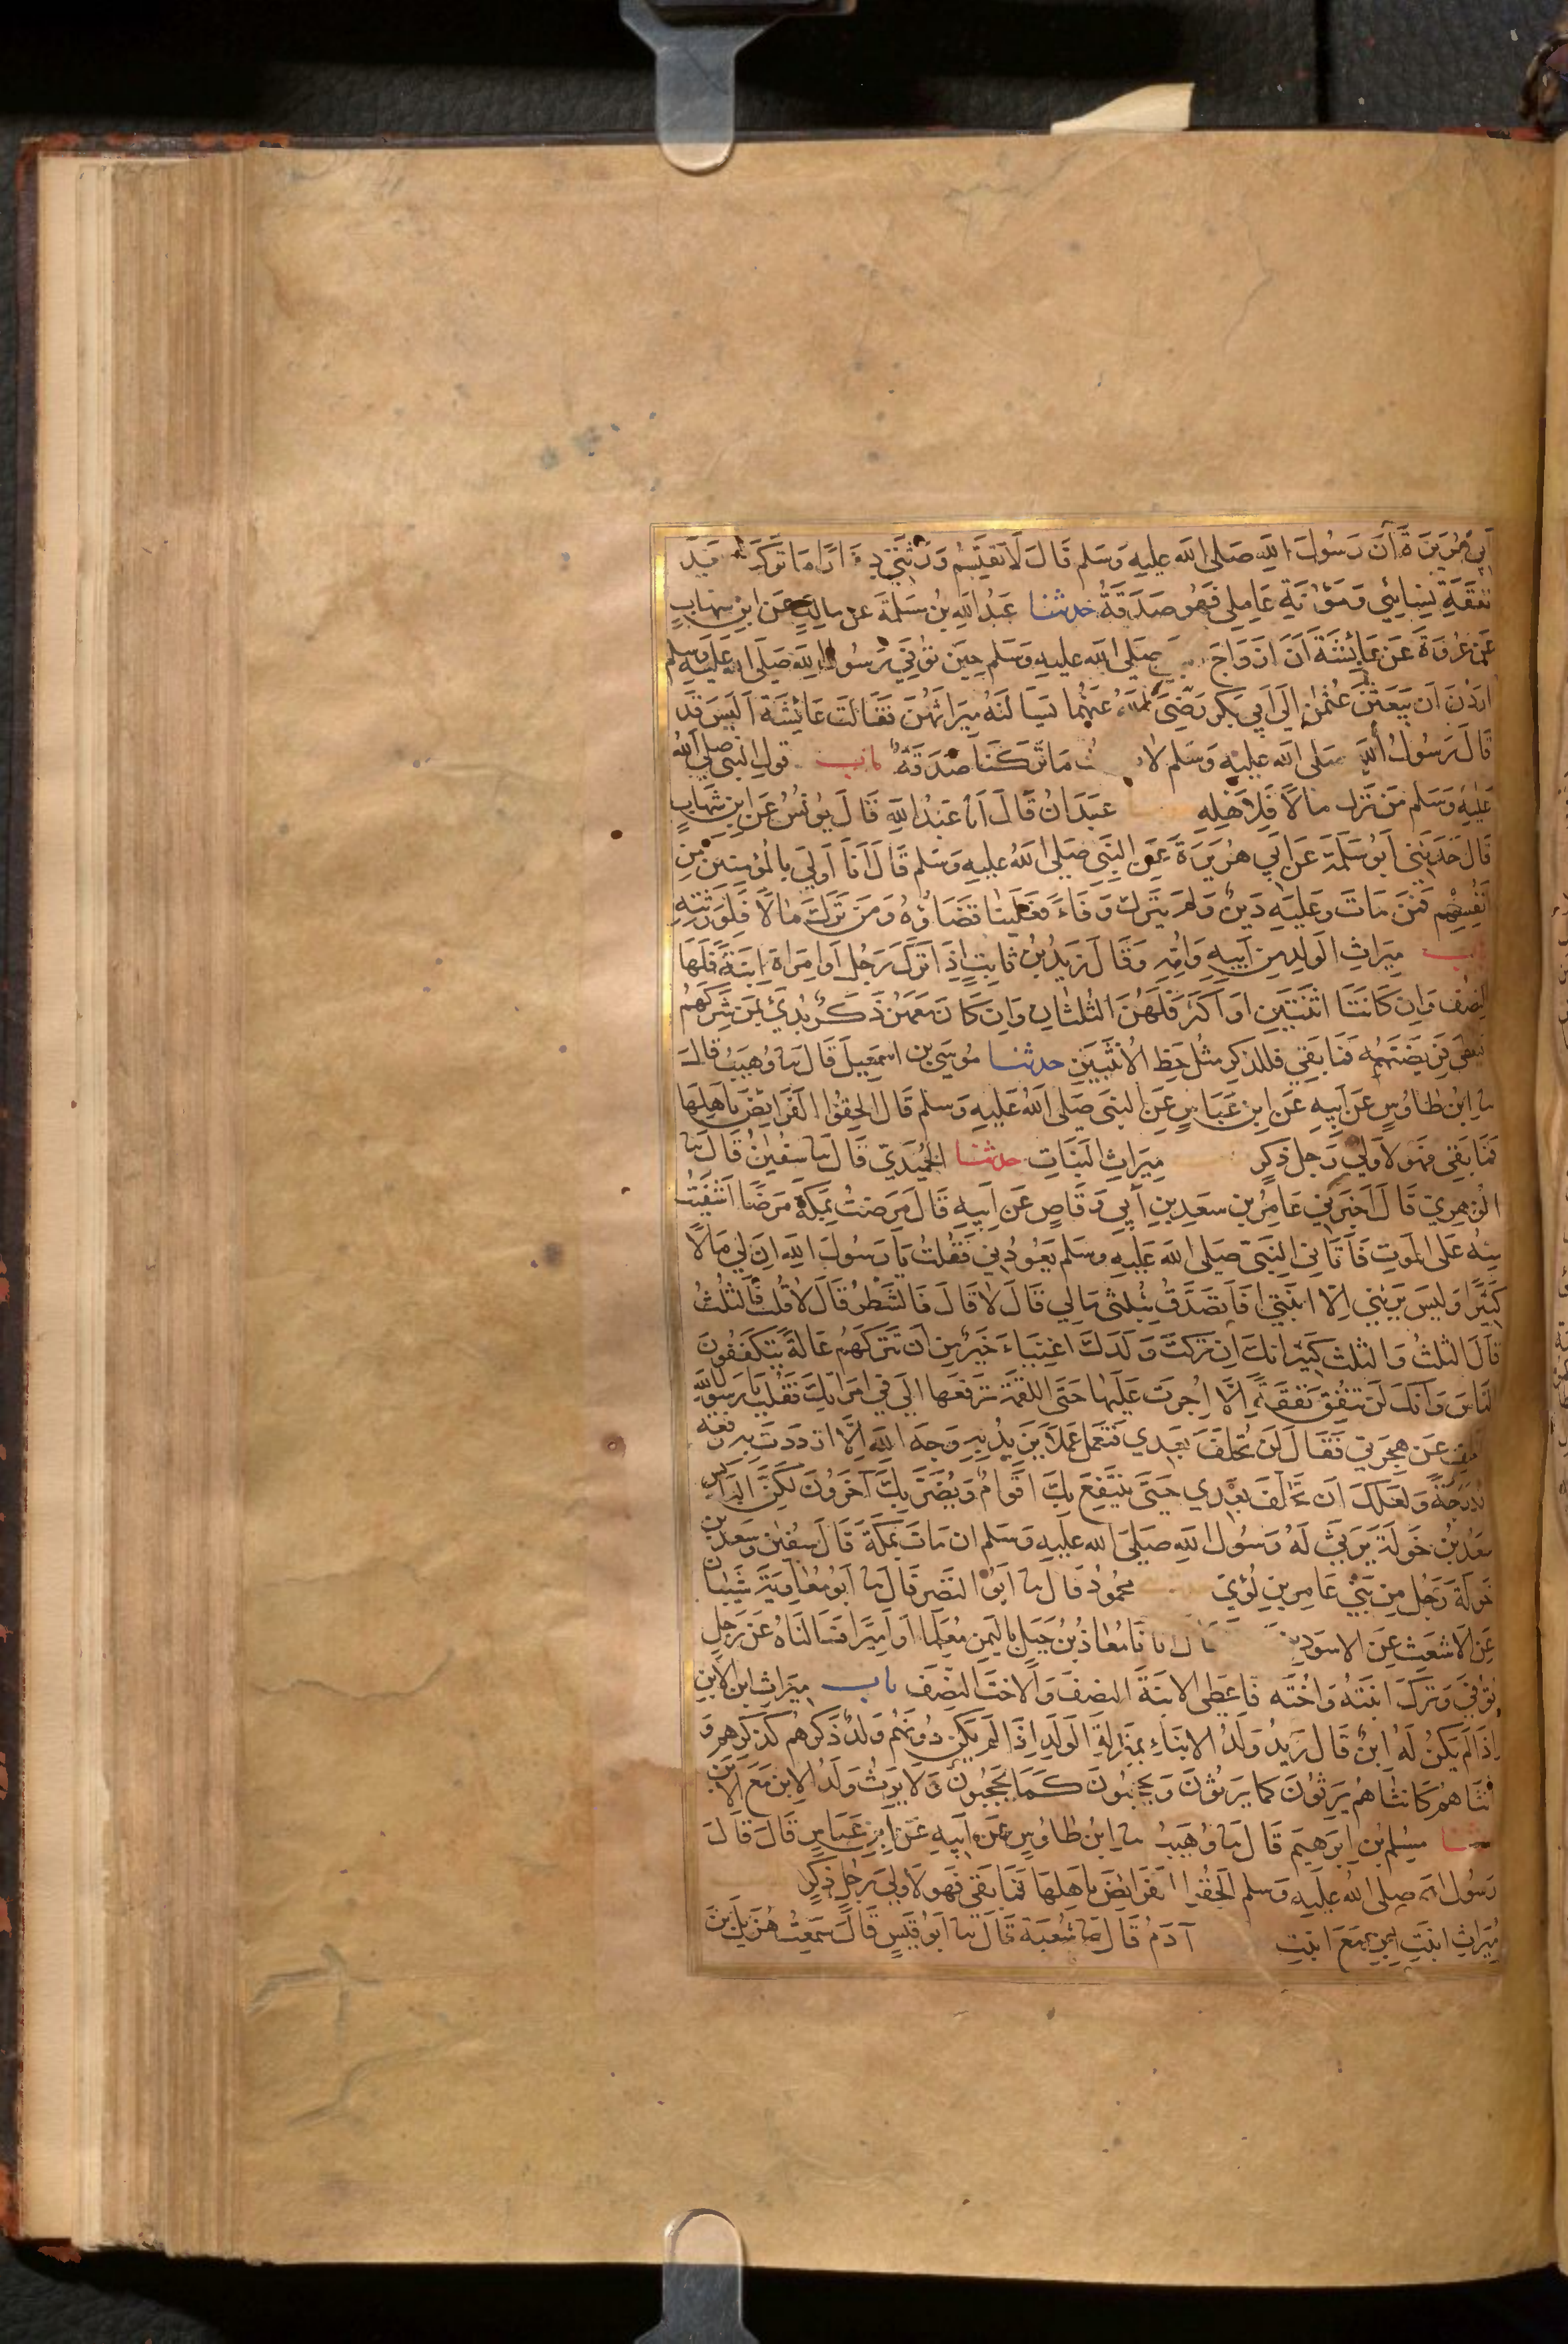 ابي هريرة أن رسول الله صلى الله عليه وسلم قال لا يقتسم ورثتي دينارا ما تركت بعد
نفقة نسائي ومؤنة عاملي فهو صدقة حدثنا عبد الله بن مسلمة عن مالك عن ابن شهاب
عن عروة عن عائشة أن ازواج صلى الله عليه وسلم حين توفي رسول الله صلى الله عليه وسلم
اردن ان يبعثن عثمن إلى أبي بكر رضي الله عنهما يسألنه ميراثهن فقالت عائشة أليس قد
قال رسول الله صلى الله عليه وسلم لا ما تركنا صدقة باب قول النبي صلى الله
عليه وسلم من ترك مالا فلاهله عبدان قال انا عبد الله قال يونس عن ابن شهاب
قال حدثني ابو سلمة عن ابي هريرة عن النبي صلى الله عليه وسلم قال أنا أولى بالمؤمنين من
انفسهم فمن مات وعليه دين ولم يترك وفاء فعلينا قضاؤه ومن ترك مالا فلورثته
باب ميراث الولد من ابيه وامه وقال زيد بن ثابت إذا ترك رجل او امراة ابنة فلها
النصف وان كانتا اثنتين او اكثر فلهن الثلثان وان كان معهن ذكر بدئ بمن شركهم
فيعطى فريضتهم فما بقي فللذكر مثل حظ الأنثيين حدثنا موسى بن اسمعيل قال نا وهيب قال
نا ابن طاوس عن ابيه عن ابن عباس عن النبي صلى الله عليه وسلم قال الحقوا الفرائض باهلها
فما بقي فهو لاولى رجل ذكر ميراث البنات حدثنا الحميدي قال نا سفين قال نا
الزهري قال اخبرني عامر بن سعد بن أبي وقاص عن ابيه قال مرضت بمكة مرضا اشفيت
منه على الموت فأتاني النبي صلى الله عليه وسلم يعودني فقلت يا رسول الله ان لي مالا
كثيرا وليس يرثني الا ابنتي افاتصدق بثلثي مالي قال لا قال فالشطر قال لا قلت فالثلث
قال الثلث والثلث كثير انك ان تركت ولدك اغنياء خير من ان تتركهم عالة يتكففون
الناس وانك لن تنفق نفقة إلا اجرت عليها حتى اللقمة ترفعها الى في امراتك فقلت يا رسول الله
اخلف عن هجرتي فقال لن تخلف بعدي فتعمل عملا يريد به وجه الله إلا ازددت به رفعة
ودرجة ولعلك ان تخلف بعدي حتى ينتفع بك اقوام ويضر بك آخرون لكن البائس
سعد بن خولة يرثي له رسول الله صلى الله عليه وسلم ان مات بمكة قال سفين وسعد بن
خولة رجل من بني عامر بن لؤي محمود قال نا ابو النضر قال نا ابو معاوية شيبان
عن الاشعث عن الاسود بن قال اتانا معاذ بن جبل باليمن معلما او اميرا فسالناه عن رجل
توفي وترك ابنته واخته فاعطى الابنة النصف والاخت النصف باب ميراث ابن الابن
إذا لم يكن له ابن قال زيد ولد الابناء بمنزلة الولد إذا لم يكن دونهم ولد ذكرهم كذكرهم و
انثاهم كانثاهم يرثون كما يرثون ويحجبون كما يحجبون ولا يرث ولد الابن مع الابن
حدثنا مسلم بن ابرهيم قال نا وهيب نا ابن طاوس عن ابيه عن ابن عباس قال قال
رسول الله صلى الله عليه وسلم الحقوا الفرائض باهلها فما بقي فهو لاولى رجل ذكر
ميراث ابنت ابن مع ابنت آدم قال نا شعبة قال نا ابو قيس قال سمعت هزيل بن